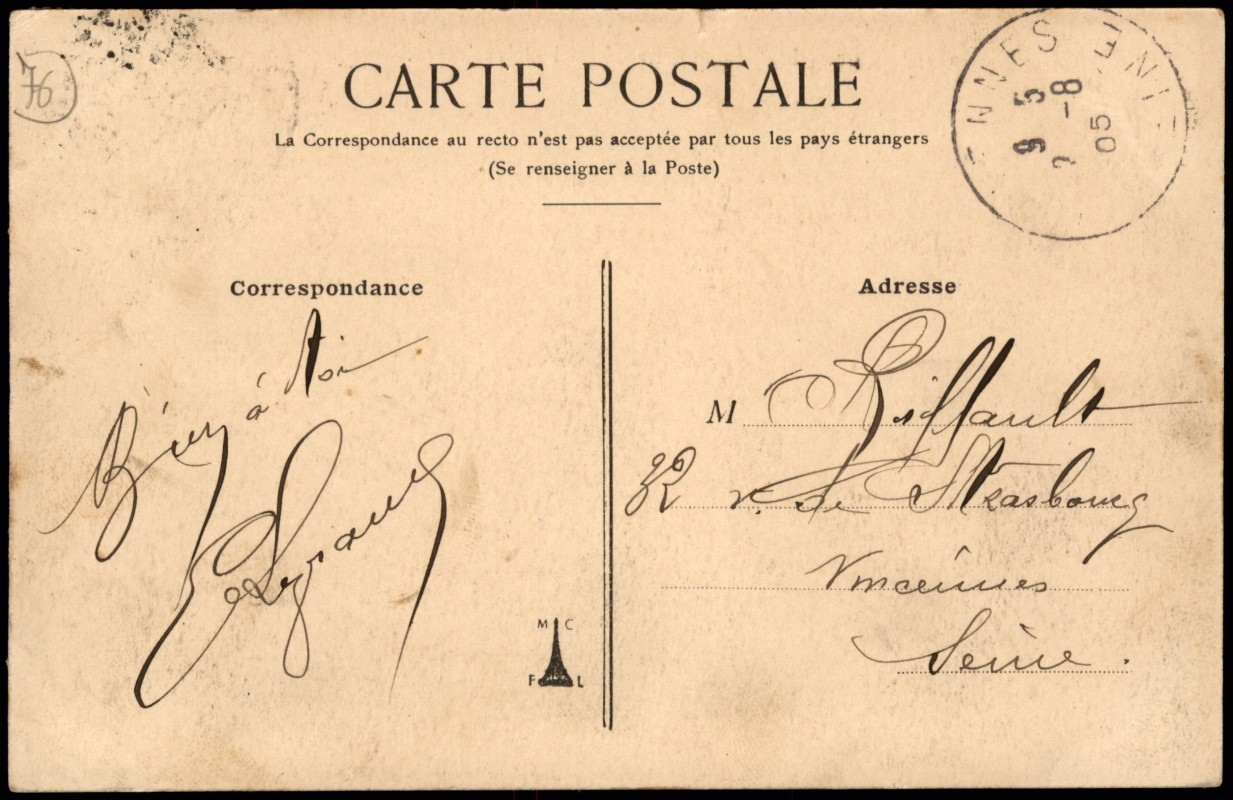 76
CARTE POSTALE
La Correspondance au recto n'est pas acceptée par tous les pays étrangers
(Se renseigner à la Poste)
NNES
INE
9 5
-8
05
Correspondance
Adresse
Bien à toi
M Riffault
32 r. de Strasbourg
Vincennes
Seine.
M C
F L